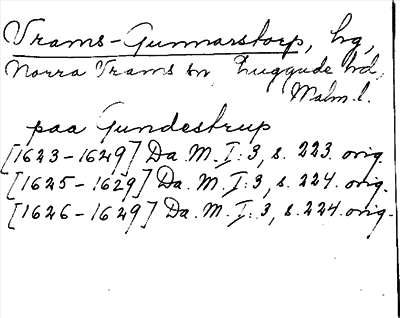 Vrams-Gunnarstorp, hg,
Norra Vrams sn Luggude hd,
Malm. l.
paa Gundestrup
[1623-1629] Da. M. I:3, s. 223. orig.
[1625-1629] Da. M. I:3, s. 224. orig.
[1626-1629] Da. M. I:3, s. 224. orig.